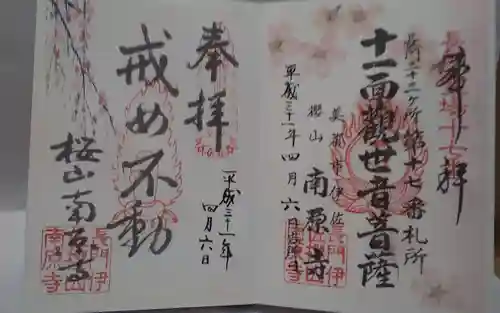 奉拝
長門三十三ヶ所第十七番札所
十一面觀世音菩薩
美祢市伊佐
桜山 南原寺
平成三十一年四月六日
奉拝
戒め不動
平成三十一年
四月六日
桜山南原寺
長門伊
南原寺